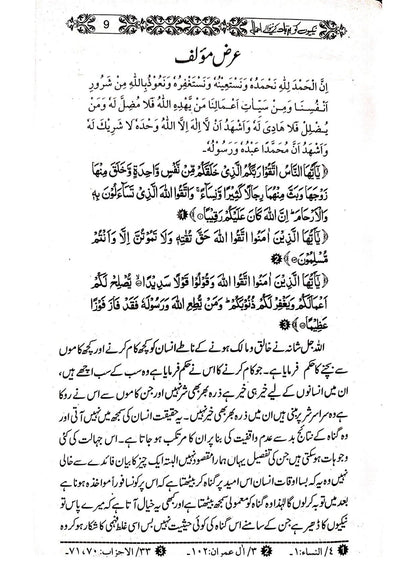 9
نیکیوں کو برباد کرنے والے اعمال
عرض مؤلف
اِنَّ الْحَمْدَ لِلّٰهِ نَحْمَدُهٗ وَنَسْتَعِيْنُهٗ وَنَسْتَغْفِرُهٗ وَنَعُوْذُ بِاللّٰهِ مِنْ شُرُوْرِ
اَنْفُسِنَا وَمِنْ سَيِّاٰتِ اَعْمَالِنَا مَنْ يَّهْدِهِ اللّٰهُ فَلَا مُضِلَّ لَهٗ وَمَنْ
يُّضْلِلْ فَلَا هَادِىَ لَهٗ وَاَشْهَدُ اَنْ لَّا اِلٰهَ اِلَّا اللّٰهُ وَحْدَهٗ لَا شَرِيْكَ لَهٗ
وَاَشْهَدُ اَنَّ مُحَمَّدًا عَبْدُهٗ وَرَسُوْلُهٗ۔
﴿يٰۤاَيُّهَا النَّاسُ اتَّقُوْا رَبَّكُمُ الَّذِيْ خَلَقَكُمْ مِّنْ نَّفْسٍ وَّاحِدَةٍ وَّخَلَقَ مِنْهَا
زَوْجَهَا وَبَثَّ مِنْهُمَا رِجَالًا كَثِيْرًا وَّنِسَآءً ۚ وَاتَّقُوا اللّٰهَ الَّذِيْ تَسَآءَلُوْنَ بِهٖ
وَالْاَرْحَامَ ؕ اِنَّ اللّٰهَ كَانَ عَلَيْكُمْ رَقِيْبًا﴾ 1
﴿يٰۤاَيُّهَا الَّذِيْنَ اٰمَنُوا اتَّقُوا اللّٰهَ حَقَّ تُقٰتِهٖ وَلَا تَمُوْتُنَّ اِلَّا وَاَنْتُمْ
مُّسْلِمُوْنَ﴾ 2
﴿يٰۤاَيُّهَا الَّذِيْنَ اٰمَنُوا اتَّقُوا اللّٰهَ وَقُوْلُوْا قَوْلًا سَدِيْدًا ۙ يُّصْلِحْ لَكُمْ
اَعْمَالَكُمْ وَيَغْفِرْ لَكُمْ ذُنُوْبَكُمْ ؕ وَمَنْ يُّطِعِ اللّٰهَ وَرَسُوْلَهٗ فَقَدْ فَازَ فَوْزًا
عَظِيْمًا﴾ 3
اللہ جل شانہ نے خالق و مالک ہونے کے ناطے انسان کو کچھ کام کرنے اور کچھ کاموں
سے بچنے کا حکم فرمایا ہے۔ جو کام کرنے کا اس نے حکم فرمایا ہے وہ سب کے سب اچھے ہیں،
ان میں انسانوں کے لیے خیر ہی خیر ہے ذرہ بھر بھی شر نہیں اور جن کاموں سے اس نے روکا
ہے وہ سراسر شر پر مبنی ہیں ان میں ذرہ بھر بھی خیر نہیں۔ یہ حقیقت انسان کی سمجھ میں نہیں آتی اور
وہ گناہ کے نتائج بد سے عدم واقفیت کی بنا پر ان کا مرتکب ہو جاتا ہے۔ اس جہالت کی کئی
وجوہات ہو سکتی ہیں جن کی تفصیل یہاں ہمارا مقصود نہیں البتہ ایک چیز کا بیان فائدے سے خالی
نہیں وہ یہ کہ بسا اوقات انسان اس امید پر گناہ کر بیٹھتا ہے کہ اس پر کونسا فوراً مواخذہ ہونا ہے
بعد میں توبہ کر لوں گا لہٰذا وہ گناہ کو معمولی سمجھ بیٹھتا ہے اور کبھی یہ خیال آتا ہے کہ میرے پاس تو
نیکیوں کا ڈھیر ہے جن کے سامنے اس گناہ کی کوئی حیثیت نہیں بس اسی غلط فہمی کا شکار ہو کر وہ
1 ٤/ النساء: ١۔ 2 ٣/ آل عمران: ١٠٢۔ 3 ٣٣/ الاحزاب: ٧٠، ٧١۔